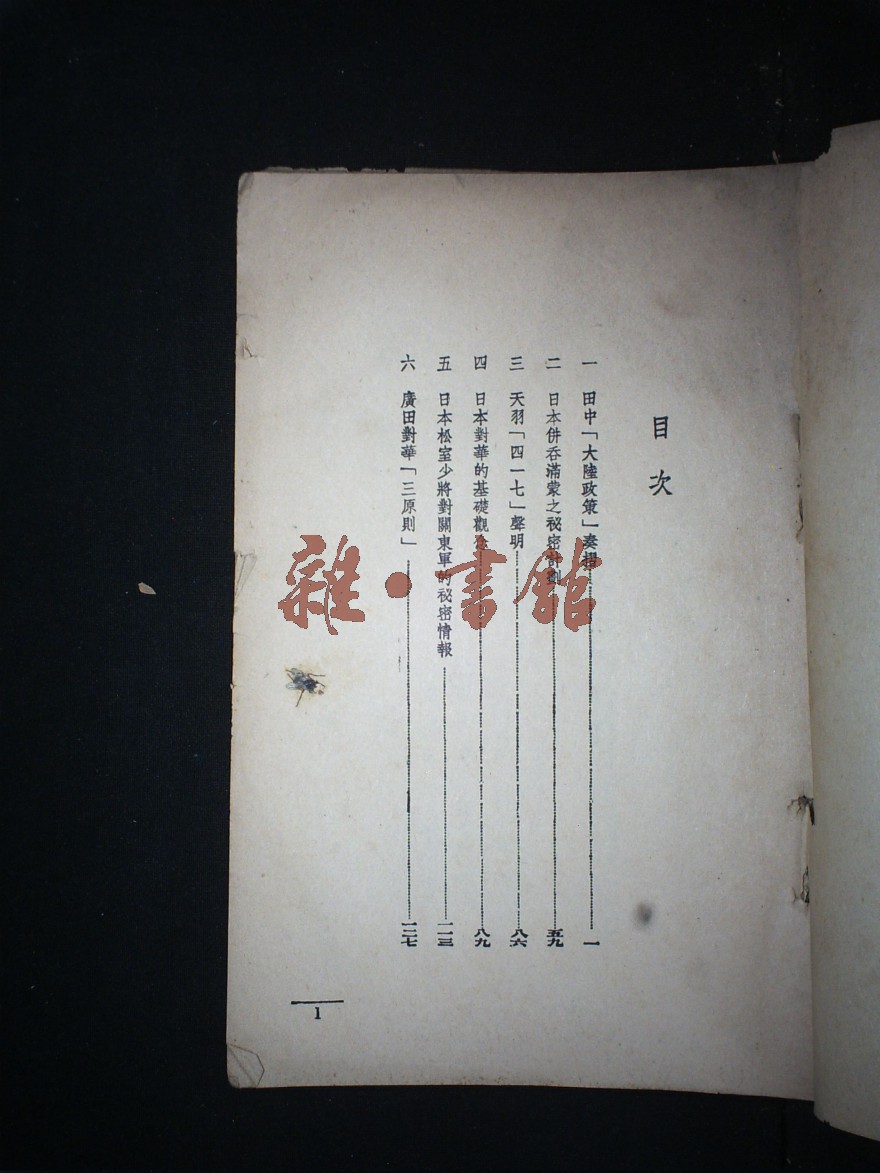 目次
一 田中「大陸政策」奏摺 一
二 日本併吞滿蒙之祕密計劃 五九
三 天羽「四一七」聲明 八六
四 日本對華的基礎觀念 八九
五 日本松室少將對關東軍的祕密情報 一一三
六 廣田對華「三原則」 一二七
1
雜·書館